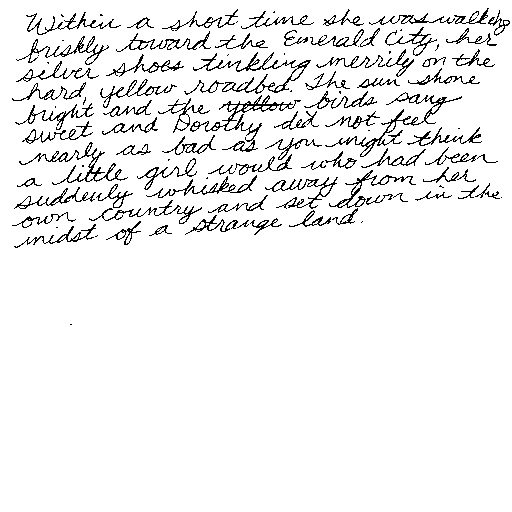 Within a short time she was walking
briskly toward the Emerald City, her
silver shoes tinkling merrily on the
hard, yellow roadbed. The sun shone
bright and the yellow birds sang
sweet and Dorothy did not feel
nearly as bad as you might think
a little girl would who had been
suddenly whisked away from her
own country and set down in the
midst of a strange land.